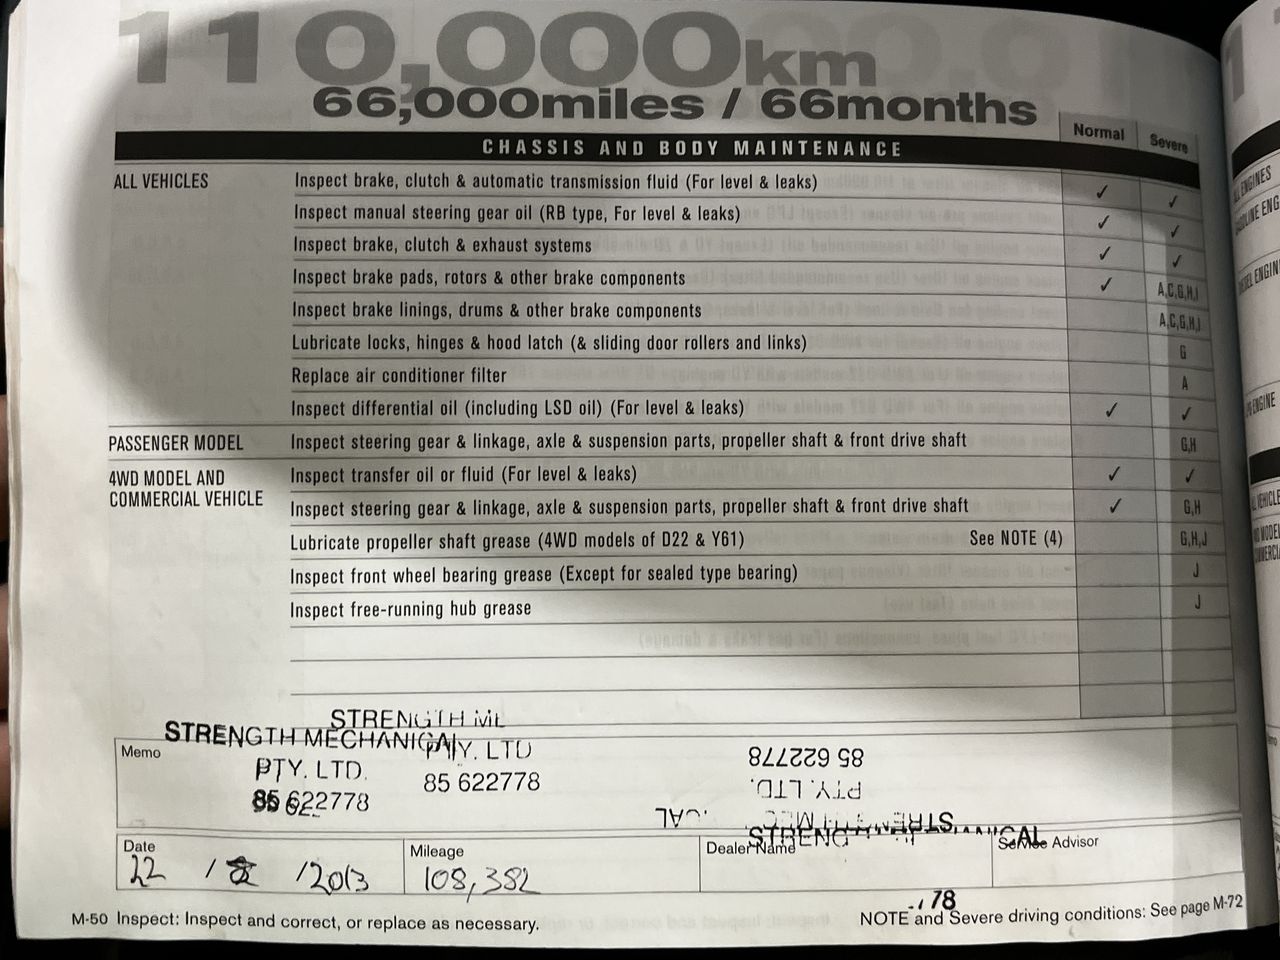 110,000km
66,000miles / 66months
Normal Severe
CHASSIS AND BODY MAINTENANCE
ALL VEHICLES Inspect brake, clutch & automatic transmission fluid (For level & leaks) ✓ ✓
Inspect manual steering gear oil (RB type, For level & leaks) ✓ ✓
Inspect brake, clutch & exhaust systems ✓ ✓
Inspect brake pads, rotors & other brake components ✓ A,C,G,H,I
Inspect brake linings, drums & other brake components A,C,G,H,I
Lubricate locks, hinges & hood latch (& sliding door rollers and links) G
Replace air conditioner filter A
Inspect differential oil (including LSD oil) (For level & leaks) ✓ ✓
PASSENGER MODEL Inspect steering gear & linkage, axle & suspension parts, propeller shaft & front drive shaft G,H
4WD MODEL AND Inspect transfer oil or fluid (For level & leaks) ✓ ✓
COMMERCIAL VEHICLE Inspect steering gear & linkage, axle & suspension parts, propeller shaft & front drive shaft ✓ G,H
Lubricate propeller shaft grease (4WD models of D22 & Y61) See NOTE (4) G,H,J
Inspect front wheel bearing grease (Except for sealed type bearing) J
Inspect free-running hub grease J
STRENGTH
STRENGTH MECHANICAL PTY. LTD
Memo
PTY. LTD.
85 622778
85 622778
85 622778
PTY. LTD.
Date Mileage Dealer Name Service Advisor
22 / / 2013 108,382
78
M-50 Inspect: Inspect and correct, or replace as necessary.
NOTE and Severe driving conditions: See page M-72